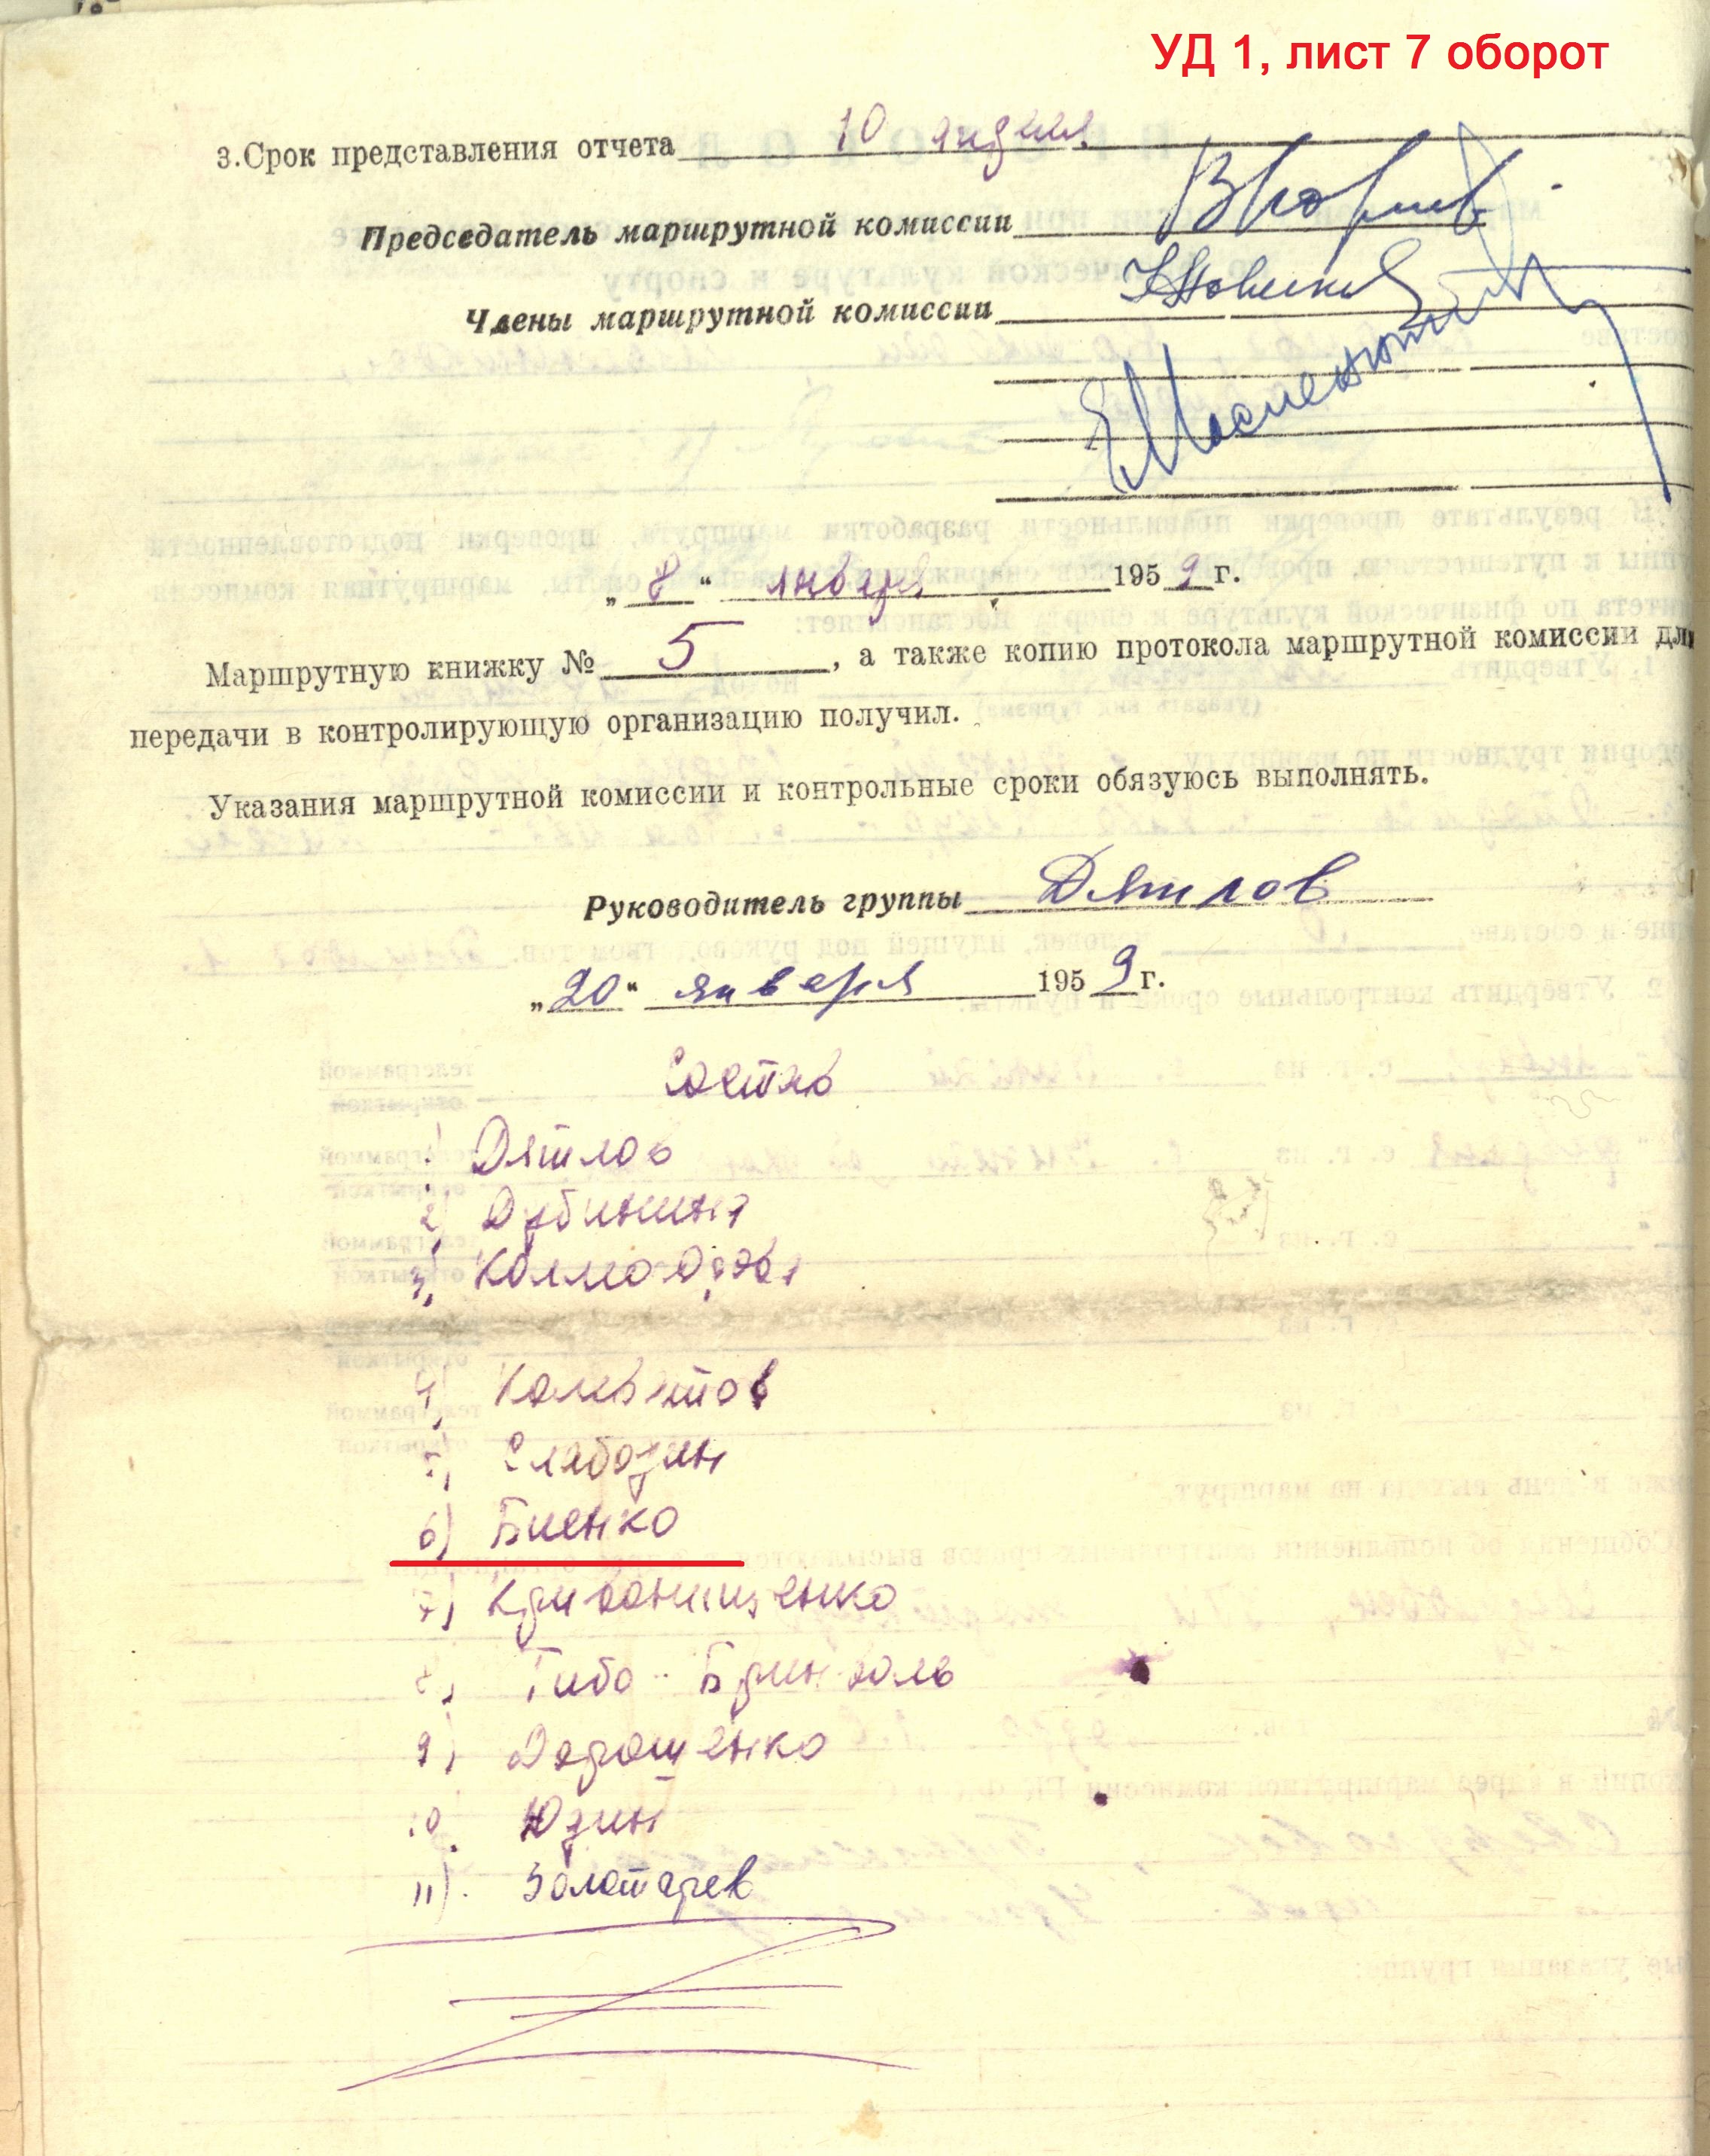 УД 1, лист 7 оборот
3.Срок представления отчета 10 апреля
Председатель маршрутной комиссии
Члены маршрутной комиссии
Е Масленников
„8“ января 1959 г.
Маршрутную книжку № 5, а также копию протокола маршрутной комиссии для
передачи в контролирующую организацию получил.
Указания маршрутной комиссии и контрольные сроки обязуюсь выполнять.
Руководитель группы Дятлов
„20“ января 1959 г.
Состав
1) Дятлов
2) Дубинина
3) Колмогорова
4) Колеватов
5) Слободин
6) Биенко
7) Кривонищенко
8) Тибо-Бриньоль
9) Дорошенко
10. Юдин
11). Золотарев